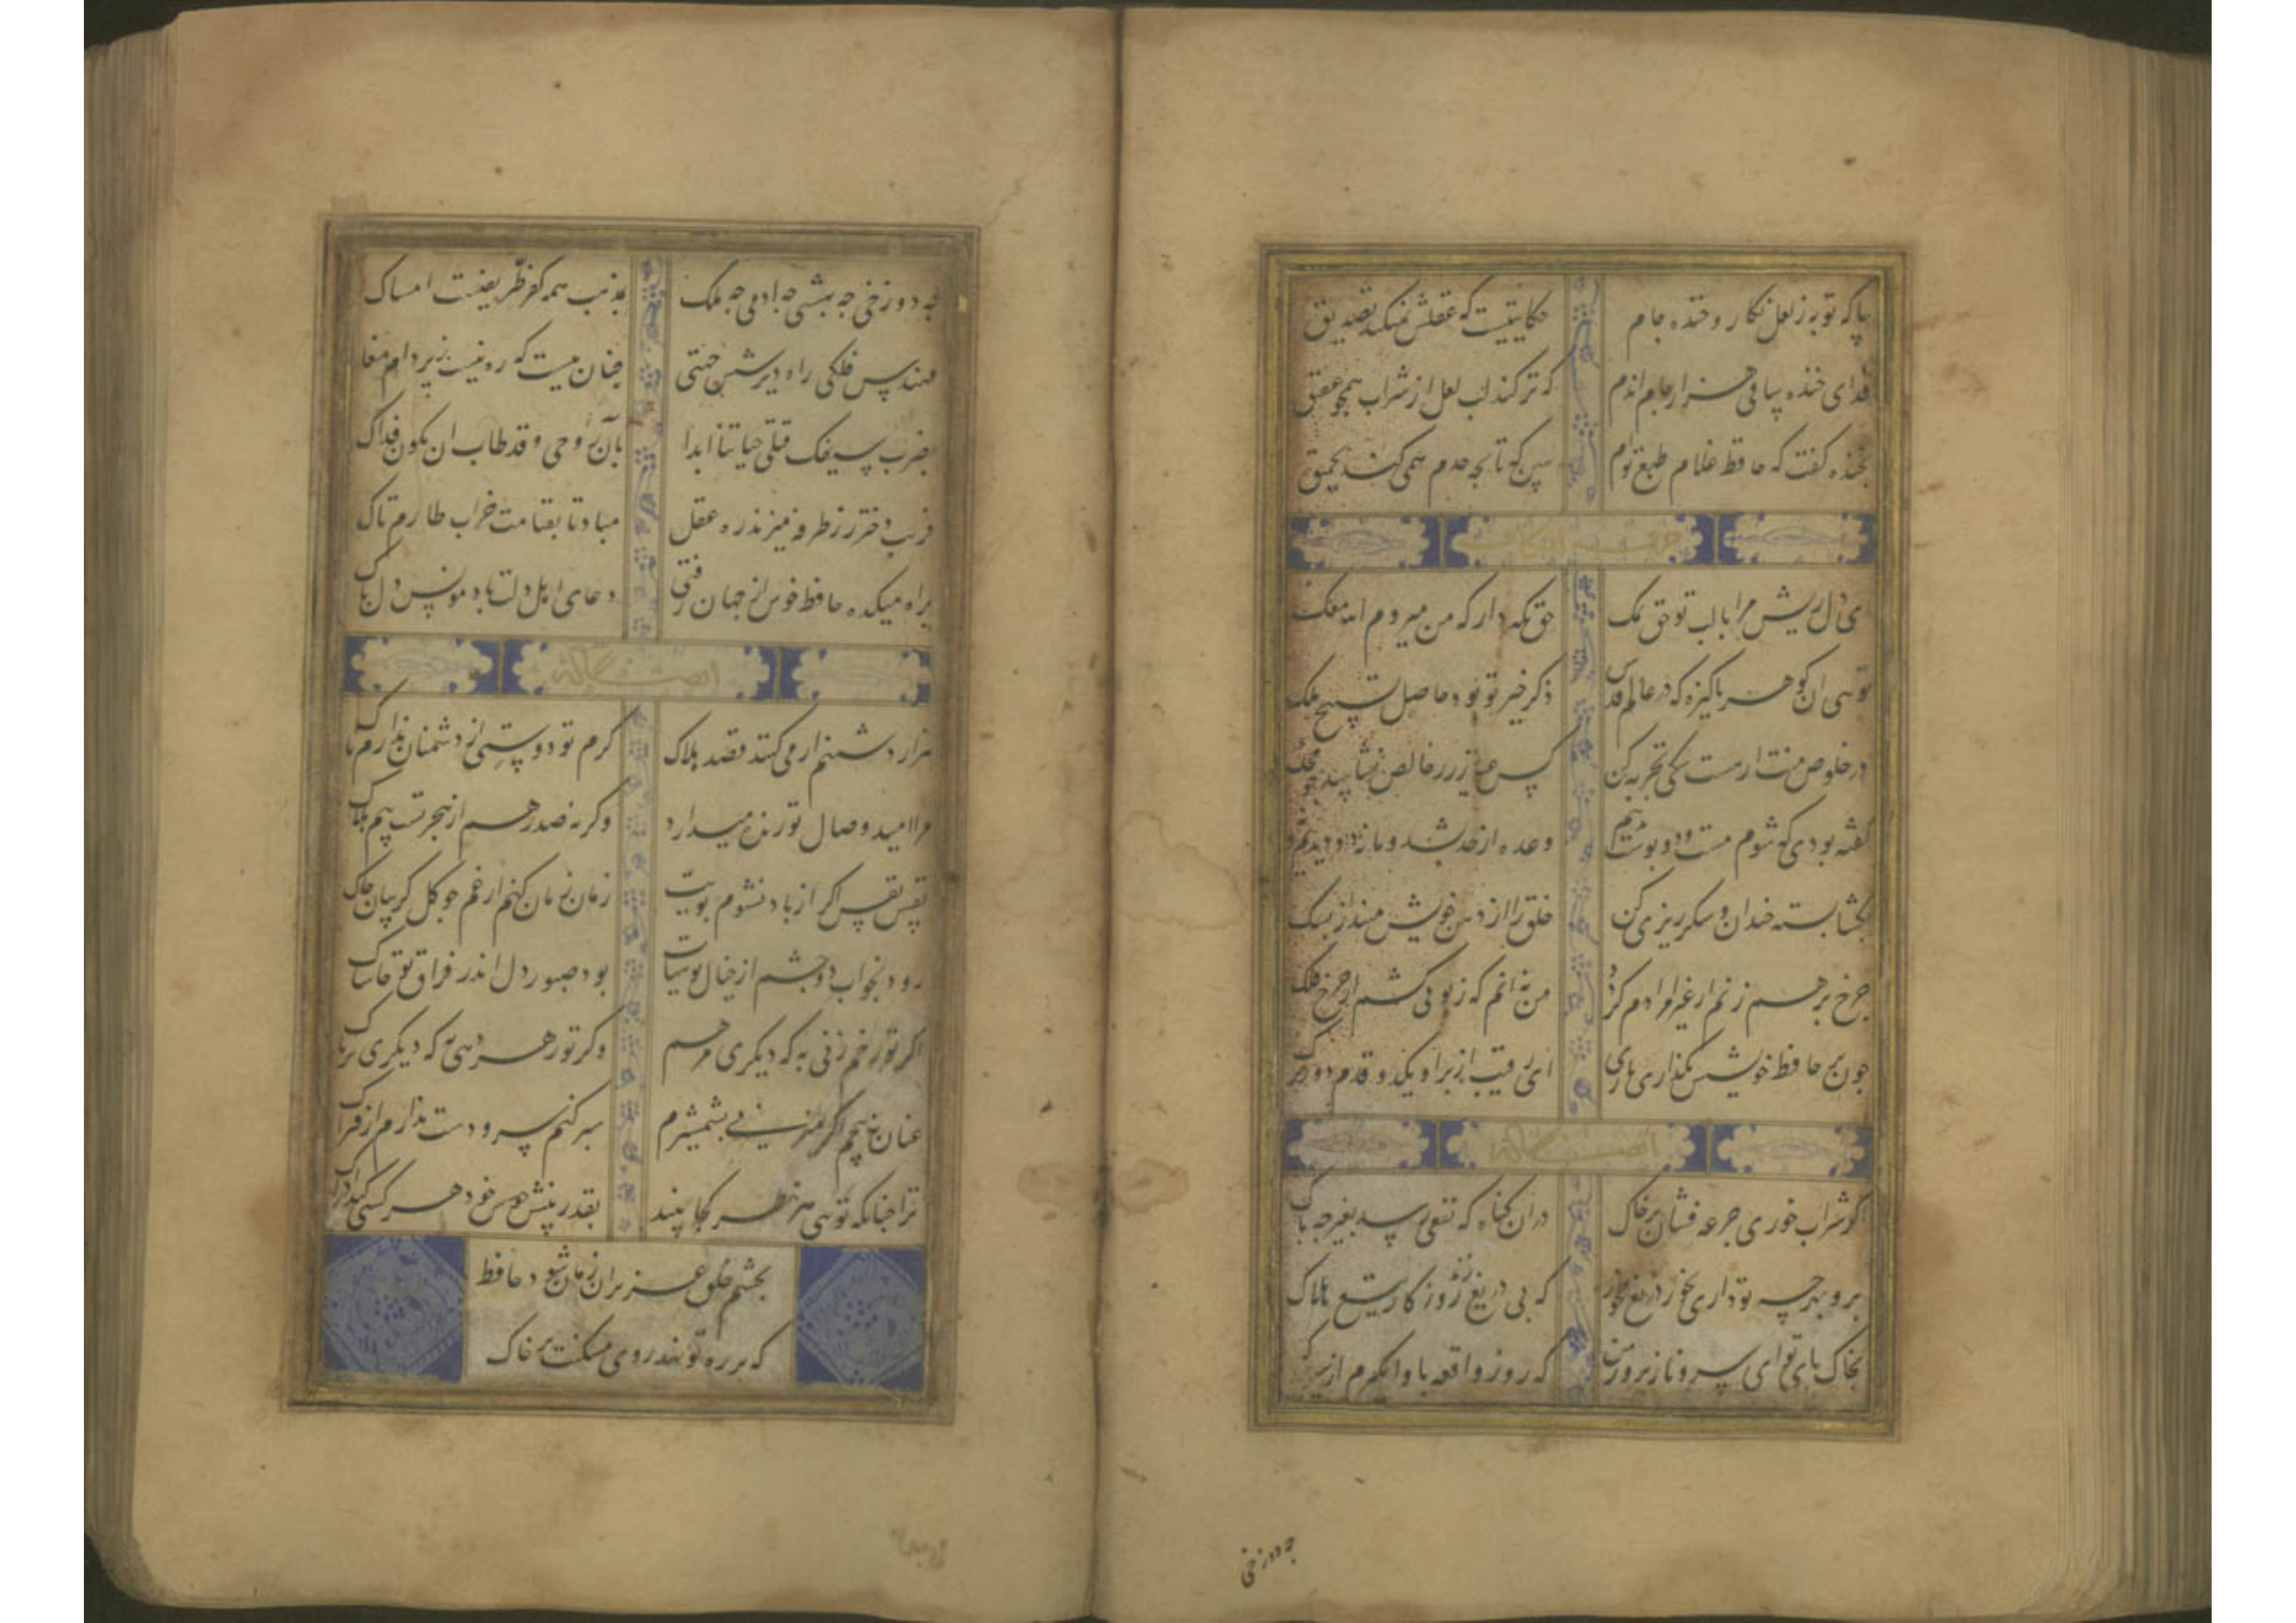 بیا که توبه ز لعل نکار و خنده جام حکایتیست که عقلش نمیکند تصدیق
فدای خنده ساقی هزار جام اندم که تر کند لب لعل از شراب همچو عقیق
بخنده کفت که حافظ غلام طبع توام ببین که تا بچه حدم همی کند تحمیق
حرف الکاف
ای دل ریش مرا با لب تو حق نمک حق نکه دار که من میروم الله معک
تویی ان کوهر پاکیزه که در عالم قدس ذکر خیر تو بود حاصل تسبیح ملک
در خلوص منت ار هست شکی تجربه کن کس عیار زر خالص نشناسد چو محک
کفته بودی که شوم مست و دو بوست بدهم وعده از حد بشد و ما نه دو دیدیم و نه یک
بکشا بسته خندان و شکر ریزی کن خلق را از دهن خویش مینداز بشک
چرخ برهم زنم ار غیر مرادم کردد من نه انم که زبونی کشم از چرخ فلک
چون بر حافظ خویشش نکذاری باری ای رقیب از بر او یکدو قدم دورترک
ایضا له
اکر شراب خوری جرعه فشان بر خاک از ان کناه که نفعی رسد بغیر چه باک
برو بهرچه تو داری بخور دریغ مخور که بی دریغ زند روزکار تیغ هلاک
بخاک پای تو ای سرو نازپرور من که روز واقعه پا وا مکیرم از سر خاک
چه دوزخی
چه دوزخی چه بهشتی چه ادمی چه ملک بمذهب همه کفر طریقتست امساک
مهندس فلکی راه دیر شش جهتی چنان ببست که ره نیست زیر دام مغاک
بضرب سیفک قتلی حیاتنا ابدا بان روحی قد طاب ان یکون فداک
فریب دختر رز طرفه میزند ره عقل مباد تا بقیامت خراب طارم تاک
براه میکده حافظ خوش از جهان رفتی دعای اهل دلت باد مونس دل پاک
ایضا له
هزار دشمنم ار میکنند قصد هلاک کرم تو دوستی از دشمنان ندارم باک
مرا امید وصال تو زنده میدارد وکرنه صد رهم از هجرتست بیم هلاک
نفس نفس اکر از باد نشنوم بویت زمان زمان کنم از غم چو کل کریبان چاک
رود بخواب دو چشم از خیال تو هیهات بود صبور دل اندر فراق تو حاشاک
اکر تو زخم زنی به که دیکری مرهم وکر تو زهر دهی به که دیکری تریاک
عنان نپیچم اکر میزنی بشمشیرم سپر کنم سر و دستت ندارم از فتراک
ترا چنانکه تویی هر نظر کجا بیند بقدر بینش خود هر کسی کند ادراک
بچشم خلق عزیز ان زمان شود حافظ
که بر ره تو نهد روی مسکنت بر خاک